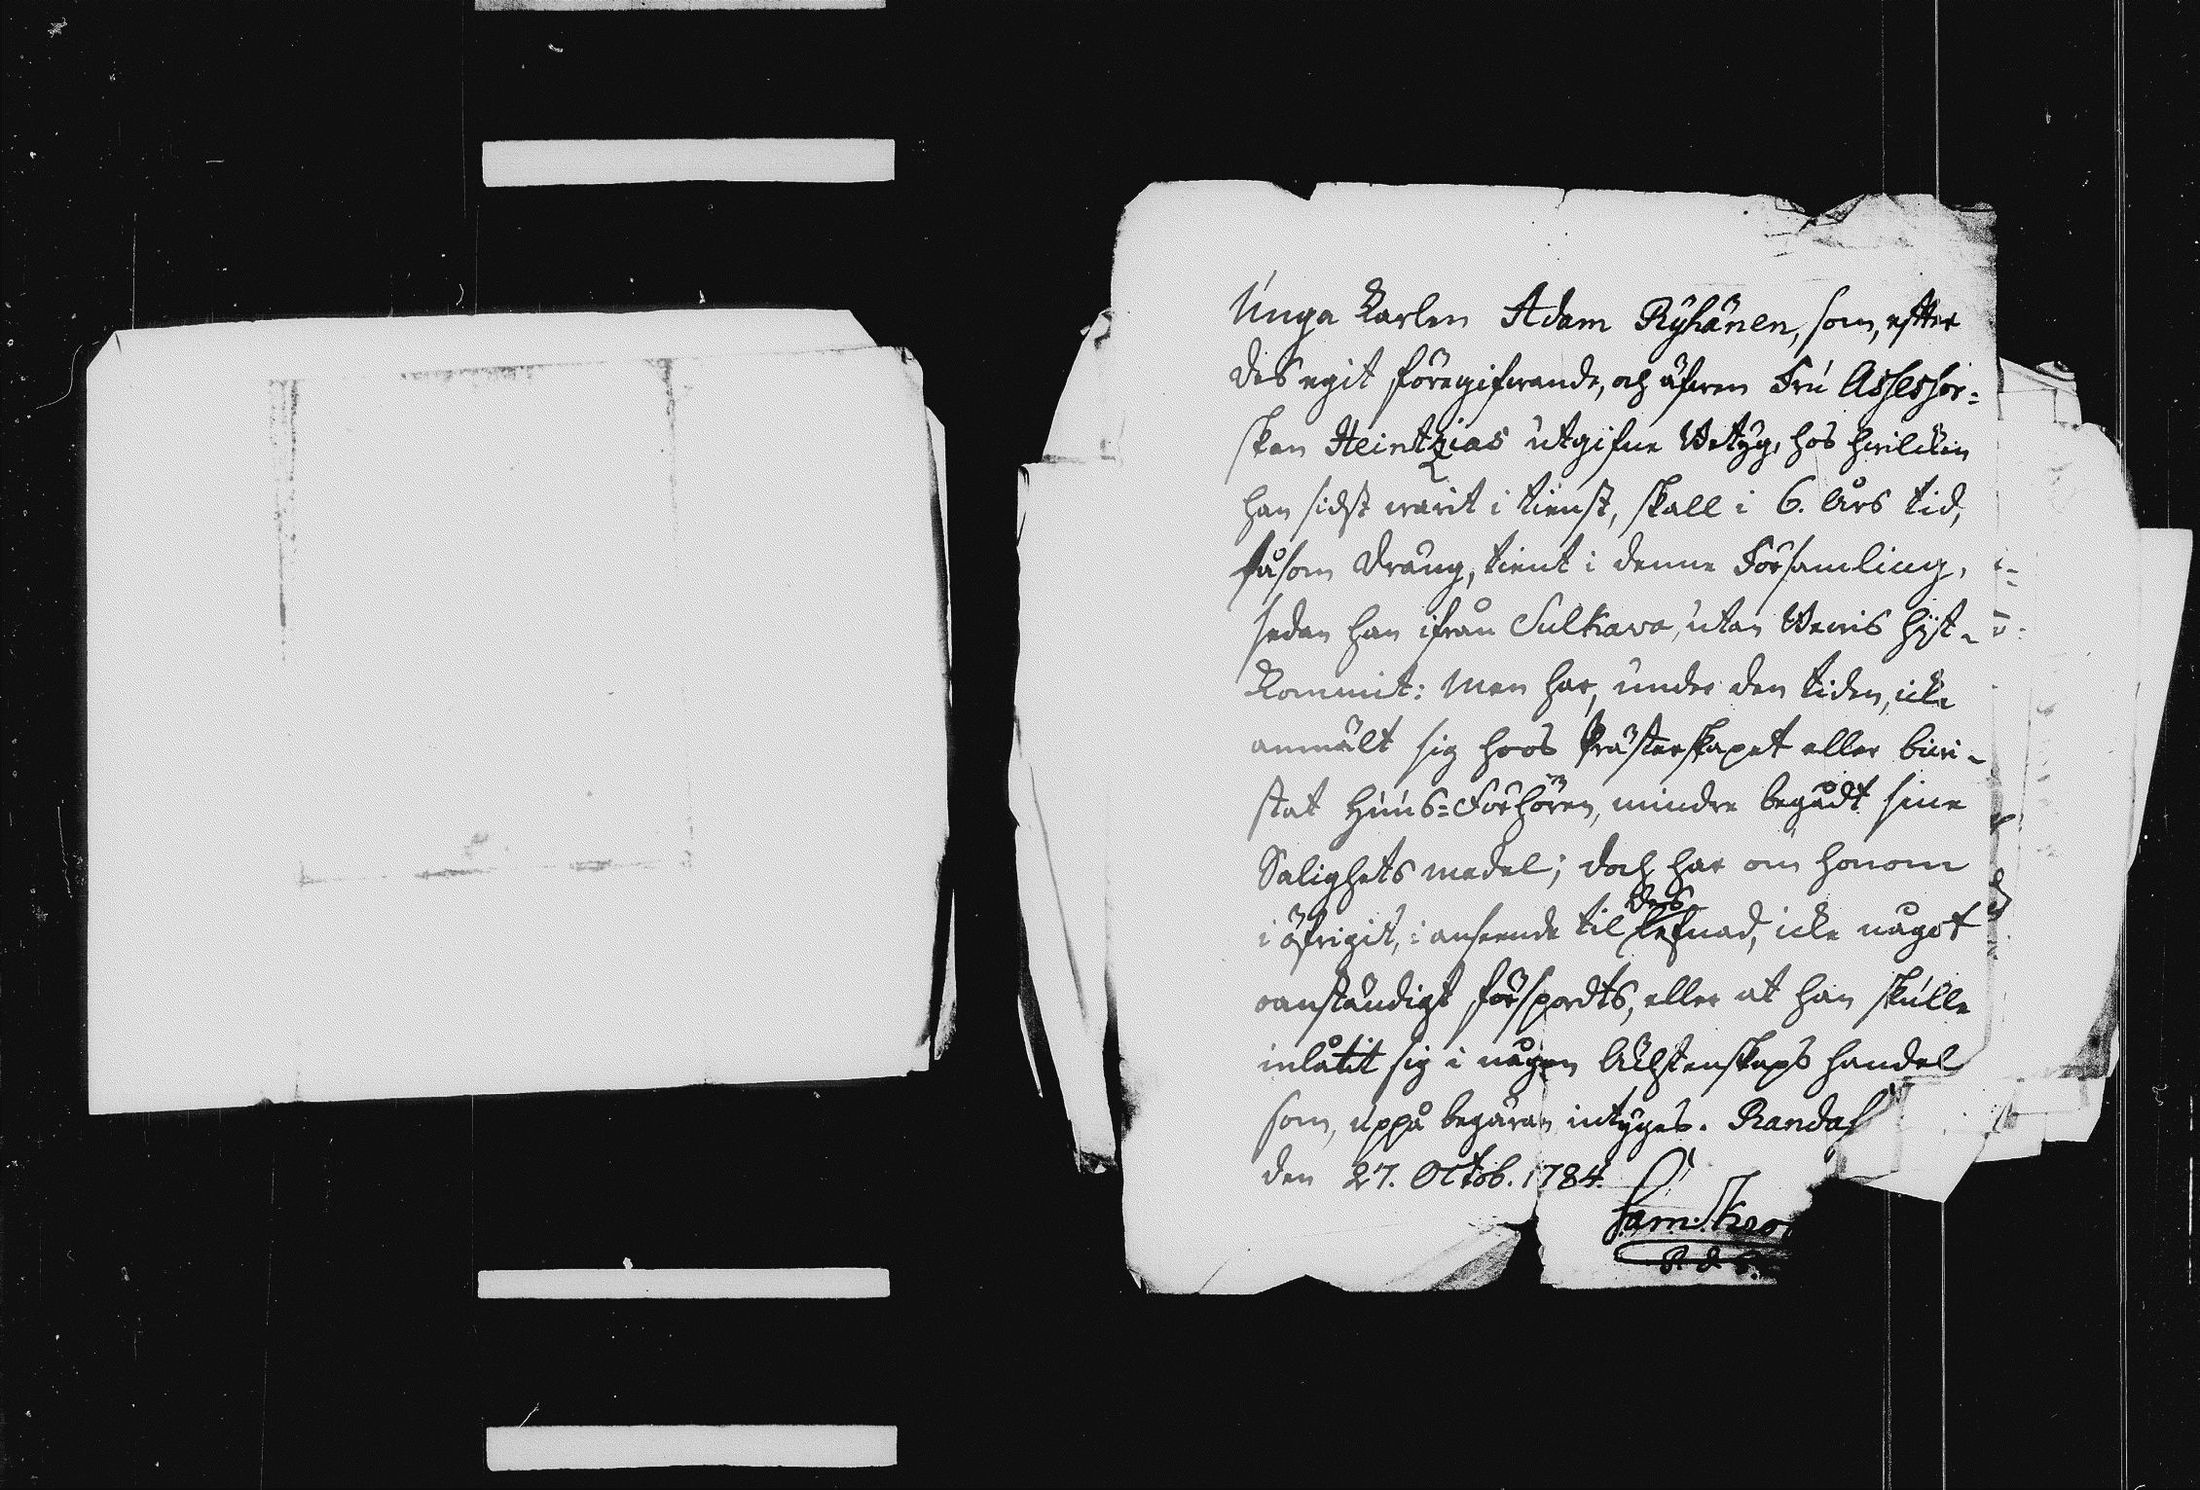 Unga Karlen Adam Ryhänen, som, efter
des egit föregifwande, och äfwen Fru Assessor=
skan Heintzias utgifne Betyg, hos hwilcken
han sidst warit i tienst, skall i 6. Års tid,
såsom Dräng, tient i denne Församling,
sedan han ifrån Sulkava, utan Bewis hijt-
kommit: Men har, under den tiden, icke
anmält sig hoos Prästerskapet eller biwi-
stat Huus=Förhören, mindre begådt sine
Salighets medel; doch har om honom
i öfrigit, i anseende til des lefnad, icke något
oanständigt förspordts, eller at han skulle
inlåtit sig i någon Äcktenskaps handel
som, uppå begäran intyges. Randas
den 27. Octob. 1784.
Sam. Kro